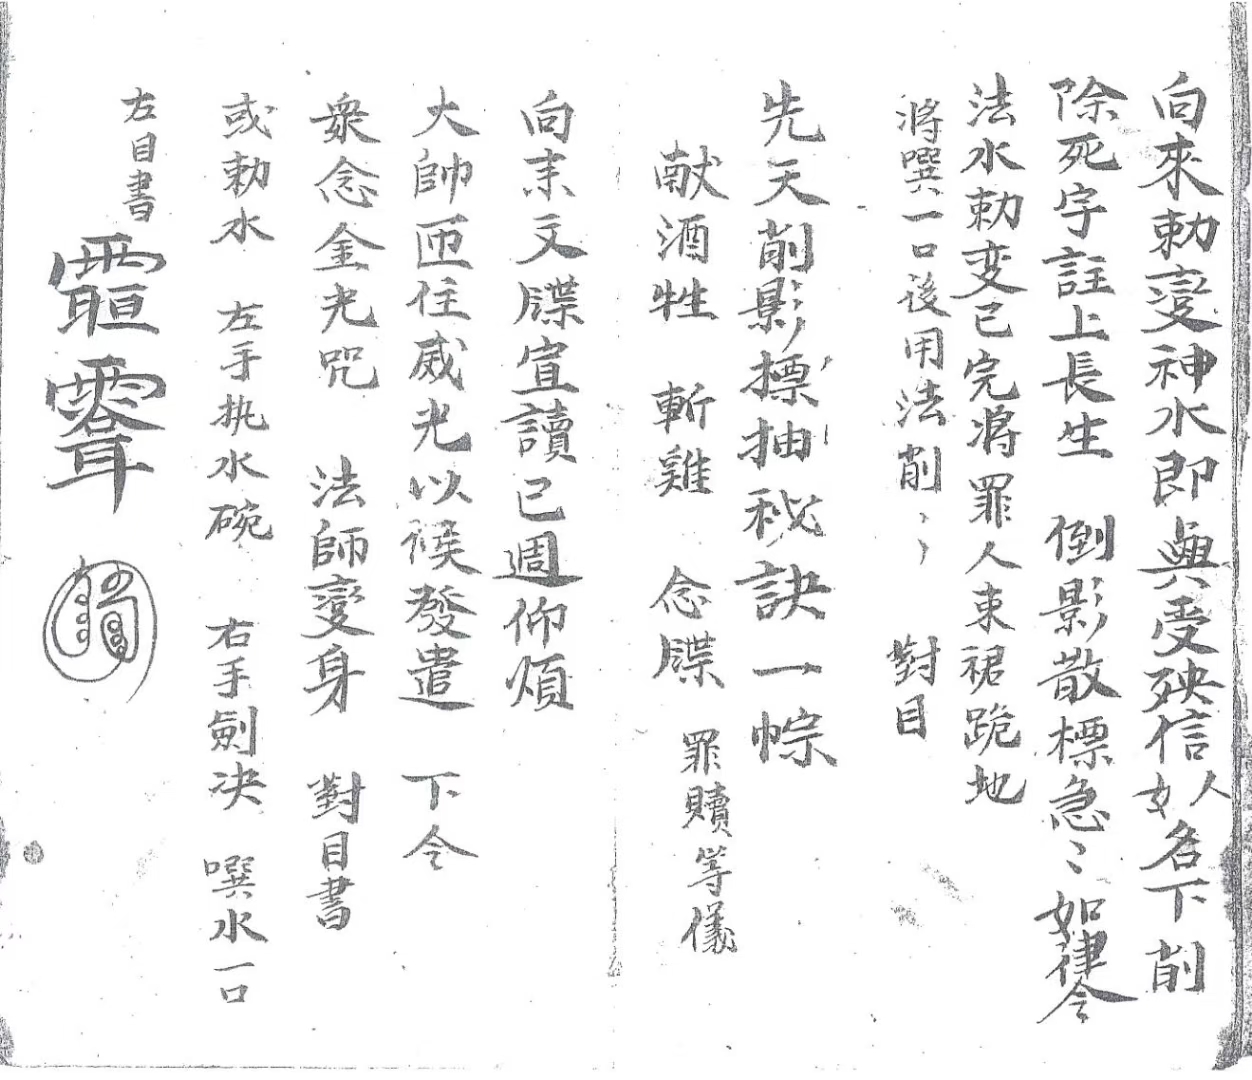 向來勅變神水即與受殃信人女名下削
除死字註上長生　倒影散標急〻如律令
法水勅变已完将罪人束裙跪地
将噀一口後用法削〻〻　對目
先天削影摽抽秘訣一宗
献酒牲　斬雞　念牒　罪贖等儀
向来文牒宣讀已週仰煩
大帥匝住威光以候發遣　下令
衆念金光咒　法師變身　對目書
或勅水　左手执水碗　右手劍决　噀水一口
左目書